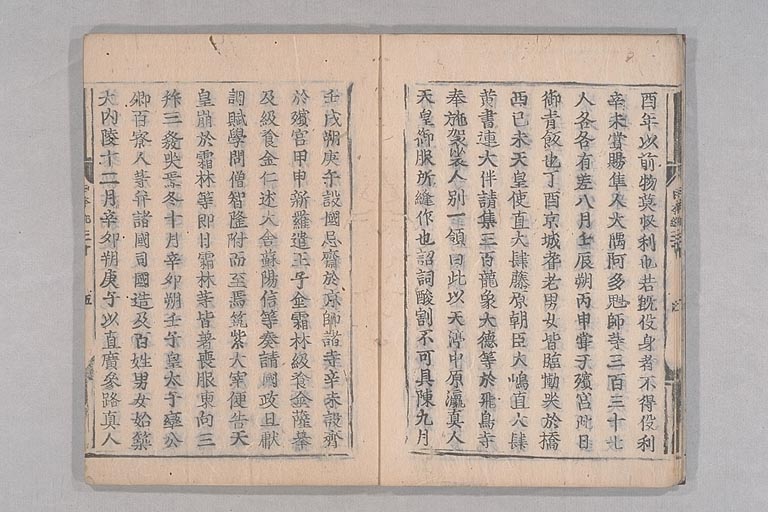 酉年以前物莫収利也若既役身者不得役利
辛未賞賜隼人大隅阿多魁師等三百三十七
人各各有差八月壬辰朔丙申甞于殯宮此日
御青飯也丁酉京城耆老男女皆臨慟哭於橋
西己未天皇使直大肆藤原朝臣大嶋直大肆
黄書連大伴請集三百龍象大德等於飛鳥寺
奉施袈裟人別一領曰此以天渟中原瀛真人
天皇御服所縫作也詔詞酸割不可具陳九月
壬戌朔庚午設國忌齋於京師諸寺辛未設齊
於殯宮甲申新羅遣王子金霜林級飡金薩摹
及級飡金仁述大舍蘇陽信等奏請國政且獻
調賦學問僧智隆附而至焉筑紫大宰便告天
皇崩於霜林等即日霜林等皆著喪服東向三
拜三發哭焉冬十月辛卯朔壬子皇太子率公
卿百寮人等并諸國司國造及百姓男女始築
大內陵十二月辛卯朔庚子以直廣參路真人
五